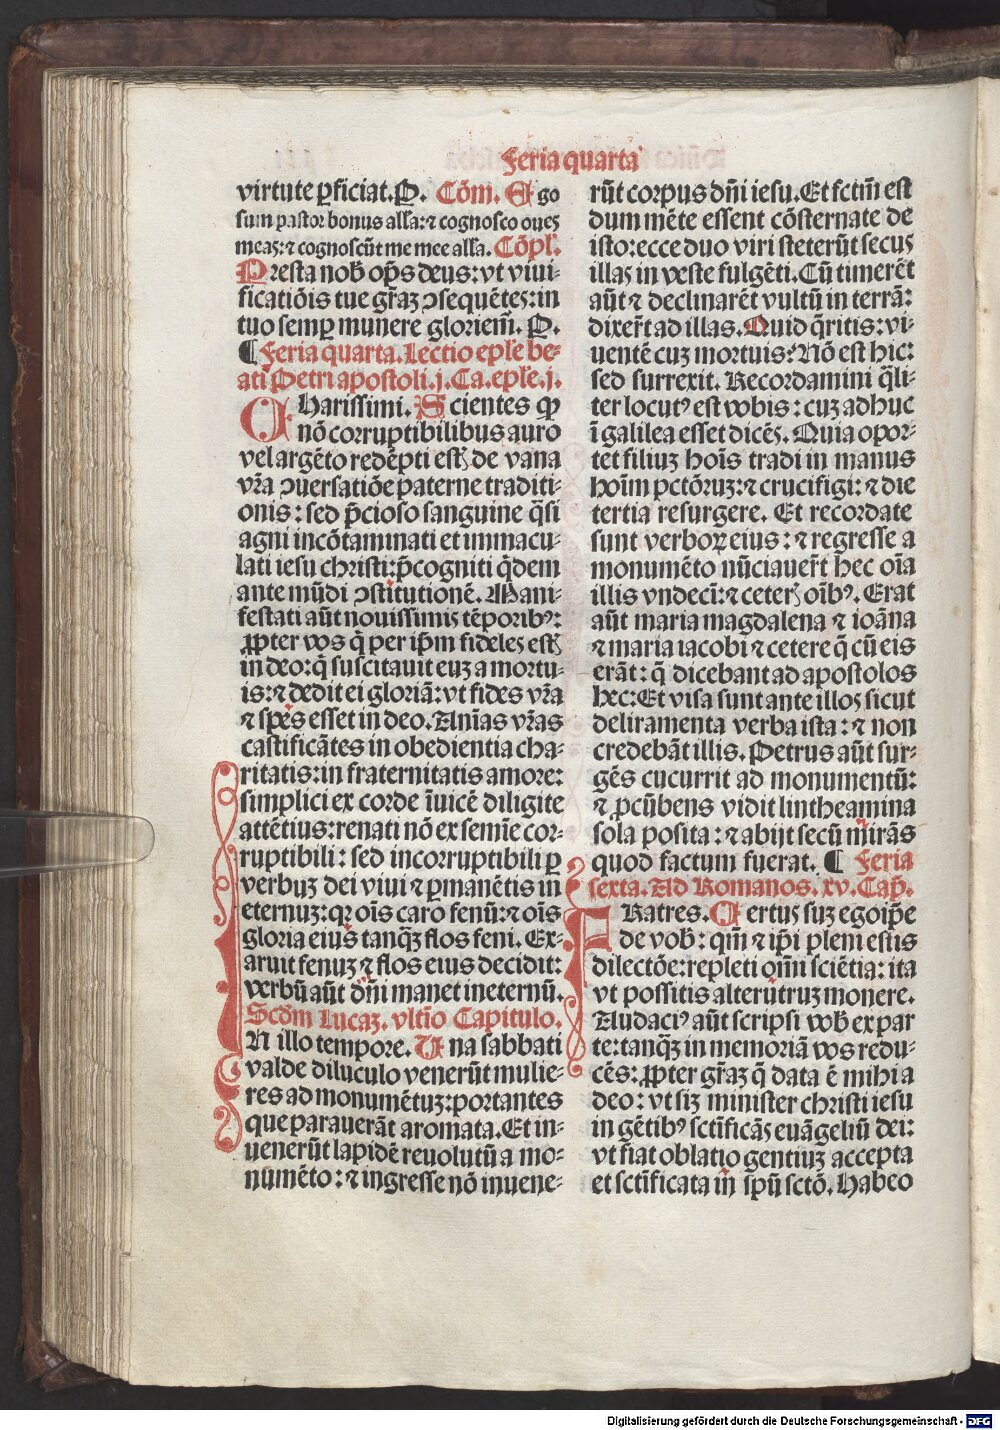 Feria quarta
virtute ꝓficiat. P. Cōm. Ego
sum pastor bonus alla: ⁊ cognosco oues
meas: ⁊ cognoscūt me mee alla. Cōpl.
Presta nob̄ op̄s deus: vt viui-
ficatiōis tue gr̄az ↄsequētes: in
tuo semꝑ munere gloriem̄. P.
¶ Feria quarta. Lectio ep̄le be-
ati Petri apostoli. j. Ca. ep̄le. j.
CHarissimi. Scientes ꝙ
nō corruptibilibus auro
vel argēto redēpti estꝭ de vana
vr̄a ↄuersatiōe paterne traditi-
onis: sed p̄cioso sanguine q̄si
agni incōtaminati et immacu-
lati iesu christi: p̄cogniti q̄dem
ante mūdi ↄstitutionē. Mani-
festati aūt nouissimis tēporibꝰ:
ꝓpter vos q̄ per ip̄m fideles estꝭ
in deo: q̄ suscitauit euz a mortu-
is: ⁊ dedit ei gloriā: vt fides vr̄a
⁊ spes esset in deo. Anīas vr̄as
castificātes in obedientia cha-
ritatis: in fraternitatis amore:
simplici ex corde īuicē diligite
attētius: renati nō ex semīe cor-
ruptibili: sed incorruptibili ꝑ
verbuꝫ dei viui ⁊ ꝑmanētis in
eternuꝫ: qꝛ oīs caro fenū: ⁊ oīs
gloria eius tanqꝫ flos feni. Ex-
aruit fenuꝫ ⁊ flos eius decidit:
verbū aūt dn̄i manet in eternū.
Scd̄m Lucaꝫ. vltīo Capitulo.
IN illo tempore. Una sabbati
valde diluculo venerūt mulie-
res ad monumētuꝫ: portantes
que parauerāt aromata. Et in-
uenerūt lapidē reuolutū a mo-
numēto: ⁊ ingresse nō inuene-
rūt corpus dn̄i iesu. Et fctm̄ est
dum mēte essent cōsternate de
isto: ecce duo viri steterūt secus
illas in veste fulgēti. Cū timerēt
aūt ⁊ declinarēt vultū in terrā:
dixer̄t ad illas. Quid q̄ritis: vi-
uentē cuꝫ mortuis? Nō est hic:
sed surrexit. Recordamini q̄li-
ter locutꝰ est vobis: cuꝫ adhuc
ī galilea esset dicēs. Quia opor-
tet filiuꝫ hoīs tradi in manus
hoīm pctōruꝫ: ⁊ crucifigi: ⁊ die
tertia resurgere. Et recordate
sunt verboꝝ eius: ⁊ regresse a
monumēto nūciauer̄t hec oīa
illis vndeci̅: ⁊ ceterꝭ oībꝰ. Erat
aūt maria magdalena ⁊ ioāna
⁊ maria iacobi ⁊ cetere q̄ cū eis
erāt: q̄ dicebant ad apostolos
hec: Et visa sunt ante illos sicut
deliramenta verba ista: ⁊ non
credebāt illis. Petrus aūt sur-
gēs cucurrit ad monumentū:
⁊ ꝓcūbens vidit lintheamina
sola posita: ⁊ abijt secū mirās
quod factum fuerat. ¶ Feria
sexta. Ad Romanos. xv. Cap̄.
FRatres. Certus suꝫ ego ip̄e
de vob̄: qm̄ ⁊ ip̄i pleni estis
dilectōe: repleti om̄i sciētia: ita
vt possitis alterutruꝫ monere.
Audaciꝰ aūt scripsi vob̄ ex par
te: tanqꝫ in memoriā vos redu-
cēs: ꝓpter gr̄az q̄ data ē mihi a
deo: vt siꝫ minister christi iesu
in gētibꝰ sctīficās euāgeliū dei:
vt fiat oblatio gentiuꝫ accepta
et sctīficata in sp̄ū sctō. Habeo
Digitalisierung gefördert durch die Deutsche Forschungsgemeinschaft - DFG